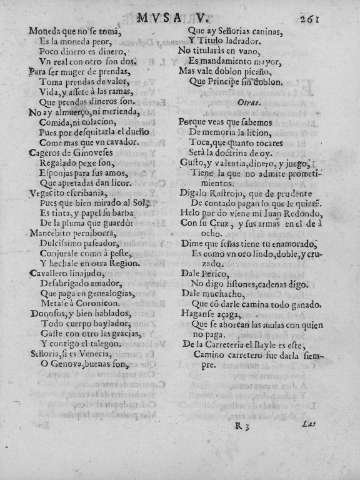 MVSA V. 261
Moneda que no se toma,
Es la moneda peor,
Poco dinero es dinero,
Vn real con otro son dos.
Para ser muger de prendas,
Toma prendas de valor,
Vida, y assete à las ramas,
Que prendas dineros son.
No ay almuerço, ni merienda,
Comida, ni colacion,
Pues por desquitarla el dueño
Come mas que vn cavador.
Cageros de Ginoveses
Regalado pexe son,
Esponjas para sus amos,
Que apretadas dan licor.
Vegecito escribania,
Pues que bien mirado al Sol,
Es tinta, y papel su barba
De la pluma que guardò:
Mancebito perniborra,
Dulcissimo passeador,
Conjurale como à peste,
Y hechale en otra Region.
Cavallero linajudo,
Desabrigado amador,
Que paga en genealogias,
Metale à Coronicon.
Donosos, y bien hablados,
Todo cuerpo baylador,
Gaste con otro las gracias,
Y contigo el talegon.
Señoria, si es Venecia,
O Genova, buenas son,
Que ay Señorias caninas,
Y Titulo ladrador.
No titularàs en vano,
Es mandamiento mayor,
Mas vale doblon picaño,
Que Principe sin doblon.
Otras.
Porque veas que sabemos
De memoria la licion,
Toca, que quanto tocares
Serà la dotrina de oy.
Gusto, y valentia, dinero, y juego,
Tiene la que no admite prometi-
mientos.
Digalo Rastrojo, que de prudente
De contado pagan lo que le quiere.
Helo por do viene mi Juan Redondo,
Con su Cruz, y sus armas en el de à
ocho.
Dime que señas tiene tu enamorado,
Es como vn oro lindo, doble, y cru-
zado.
Dale Perico,
No digo listones, cadenas digo.
Dale muchacho,
Que cõ darle camina todo ganado.
Haganse açaga,
Que se ahorcan las mulas con quien
no paga.
De la Carreteria el Bayle es este,
Camino carretero fue darla siem-
pre.
R 3
Las